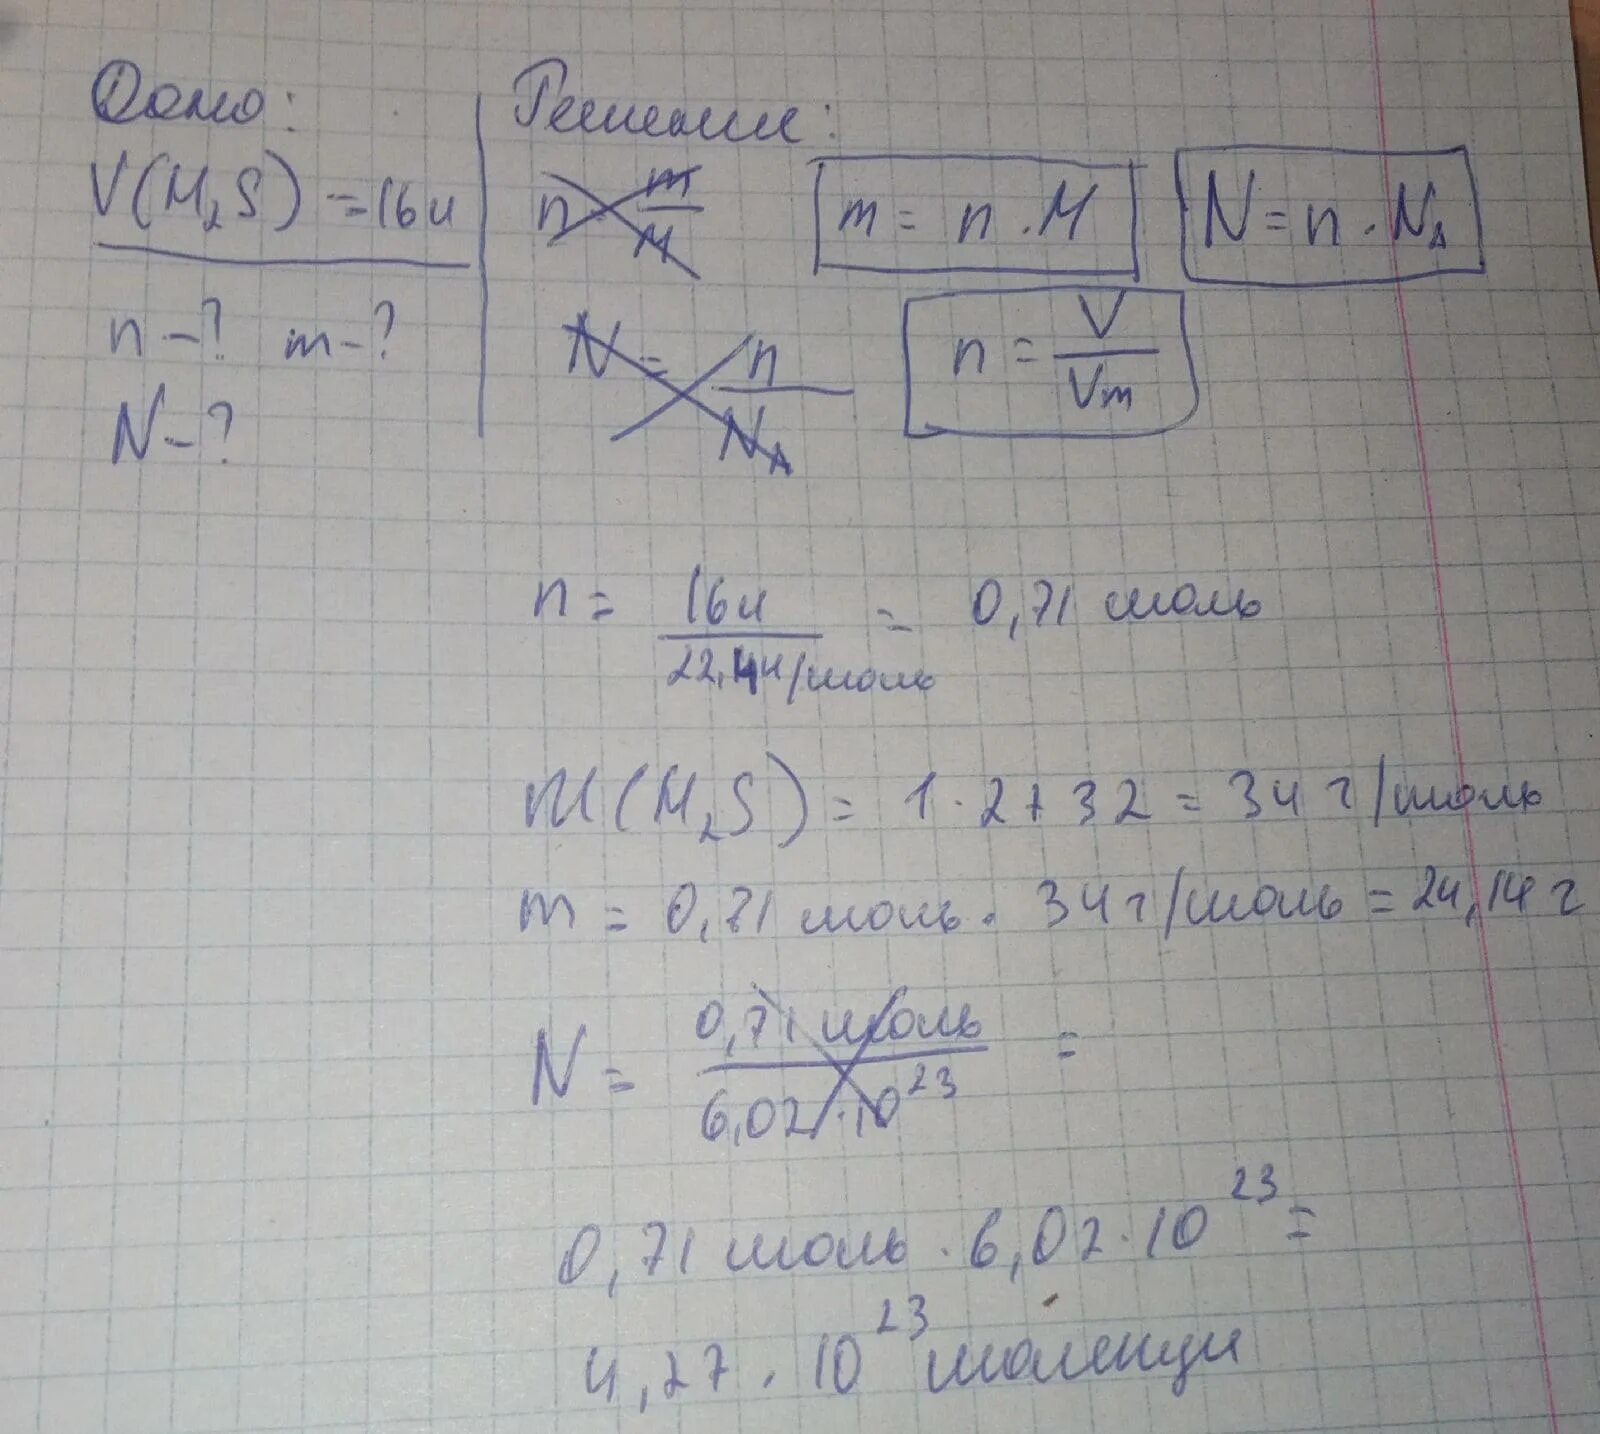 Дано:
V(H₂S) = 16л
n – ? m – ?
N – ?
Решение:
n m/M
m = n · M
N = n · Nₐ
N = n/Nₐ
n = V/Vm
n = 16л/22,4л/моль = 0,71 моль
M(H₂S) = 1 · 2 + 32 = 34 г/моль
m = 0,71 моль · 34 г/моль = 24,14 г
N = 0,71 моль/6,02 · 10²³ =
0,71 моль · 6,02 · 10²³ =
4,27 · 10²³ молекул